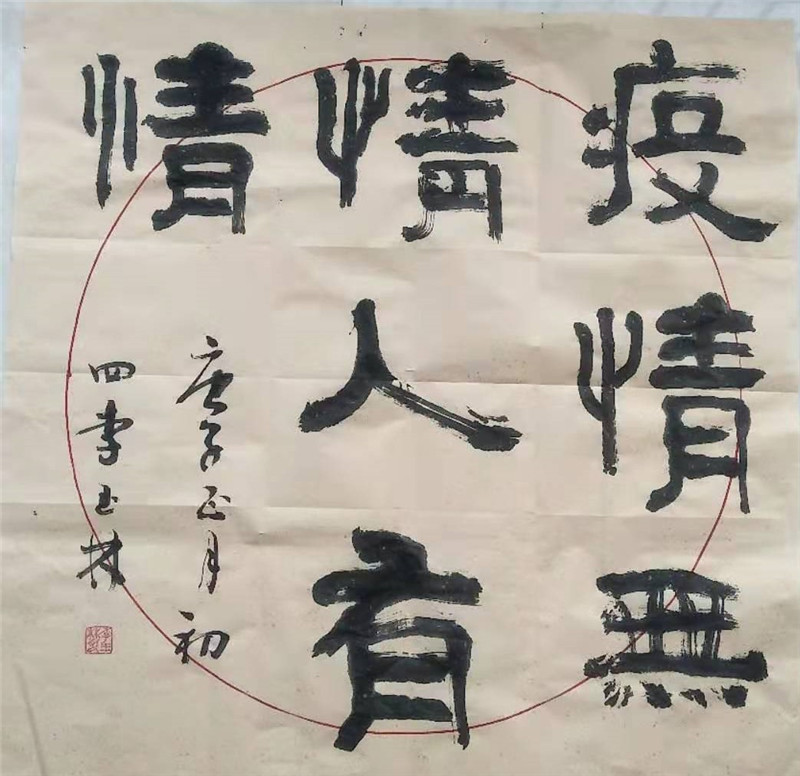 疫情無
情人有
情
庚子正月初
四李玉林